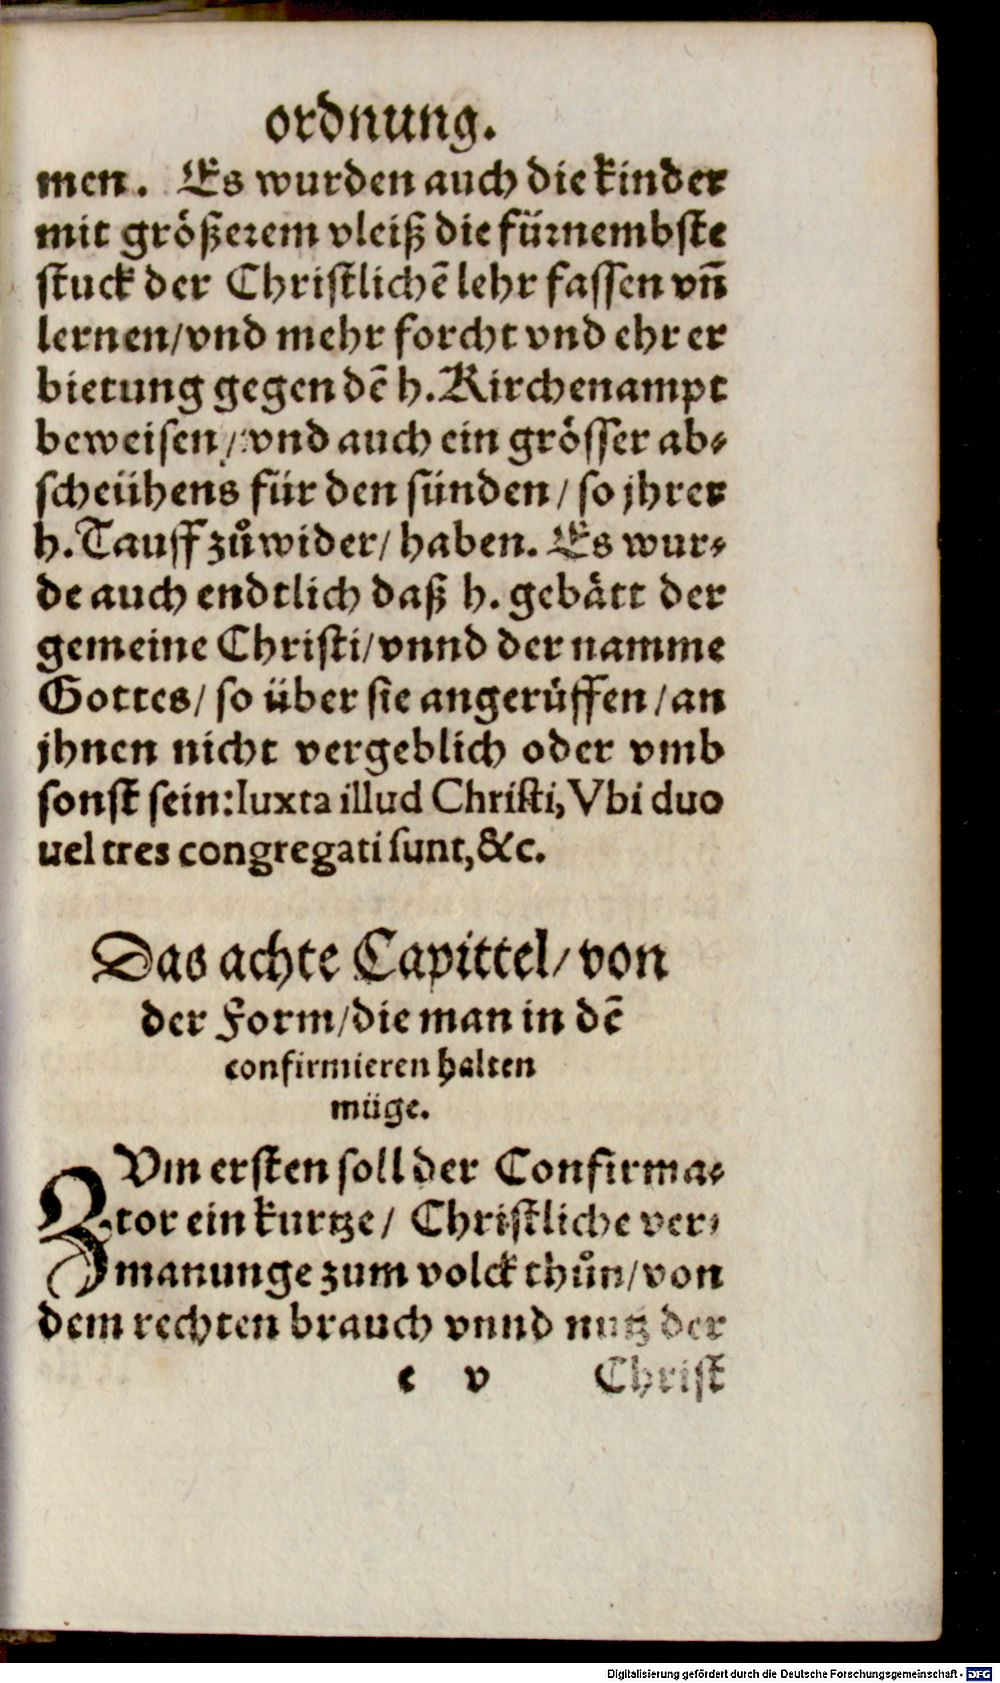 ordnung.
men. Es wurden auch die kinder
mit größerem vleiß die fürnembste
stuck der Christlichē lehr fassen vn̄
lernen/vnd mehr forcht vnd ehr er
bietung gegen dē h. Kirchenampt
beweisen/ vnd auch ein grösser ab⸗
scheühens für den sünden/ so jhrer
h. Tauff zůwider/ haben. Es wur⸗
de auch endtlich daß h. gebätt der
gemeine Christi/vnnd der namme
Gottes/ so über sie angerüffen/an
jhnen nicht vergeblich oder vmb
sonst sein: Iuxta illud Christi, Vbi duo
uel tres congregati sunt, &c.
Das achte Capittel/ von
der Form/die man in dē
confirmieren halten
müge.
ZVm ersten soll der Confirma⸗
tor ein kurtze/ Christliche ver⸗
manunge zum volck thůn/von
dem rechten brauch vnnd nutz der
c v Christ
Digitalisierung gefördert durch die Deutsche Forschungsgemeinschaft - DFG